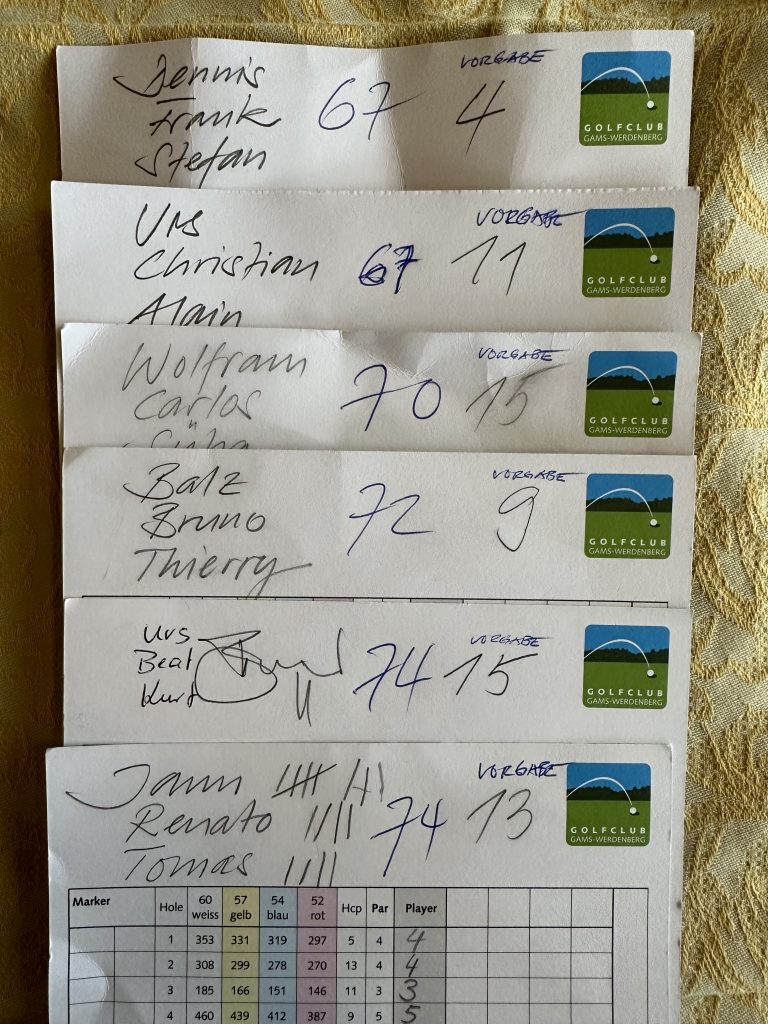 VORGABE
Dennis
Frank 67 4
Stefan
GOLFCLUB
GAMS-WERDENBERG
VORGABE
Urs
Christian 67 11
Alain
GOLFCLUB
GAMS-WERDENBERG
VORGABE
Wolfram
Carlos 70 15
GOLFCLUB
GAMS-WERDENBERG
VORGABE
Balz
Bruno 72 9
Thierry
GOLFCLUB
GAMS-WERDENBERG
VORGABE
Urs
Beat 74 15
Kurt
GOLFCLUB
GAMS-WERDENBERG
VORGABE
Jann
Renato 74 13
Tomas
GOLFCLUB
GAMS-WERDENBERG
Marker Hole 60 weiss 57 gelb 54 blau 52 rot Hcp Par Player
1 353 331 319 297 5 4 4
2 308 299 278 270 13 4 4
3 185 166 151 146 11 3 3
4 460 439 412 387 9 5 5